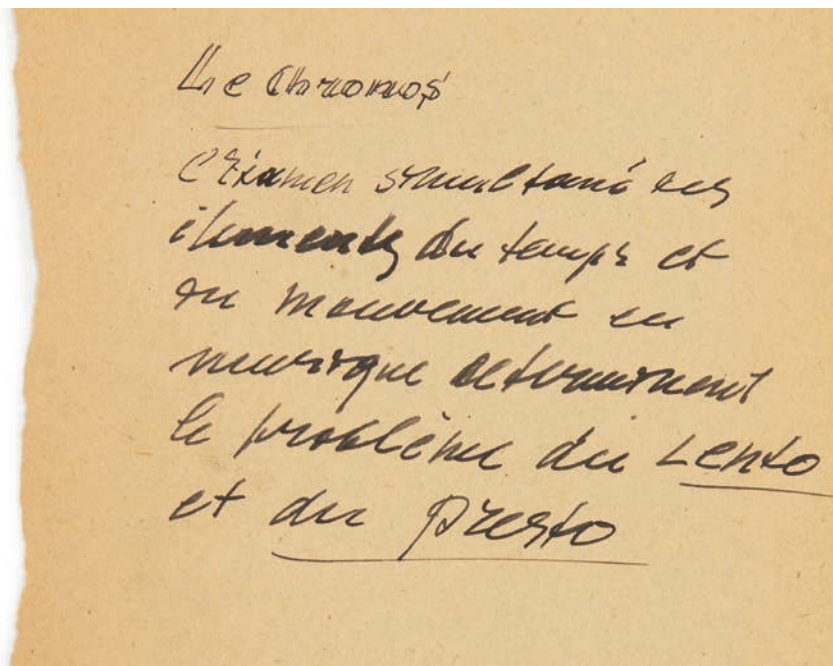 Le Chronos
L'Examen simultané des
éléments du temps et
du mouvement en
musique déterminent
le problème du Lento
et du Presto